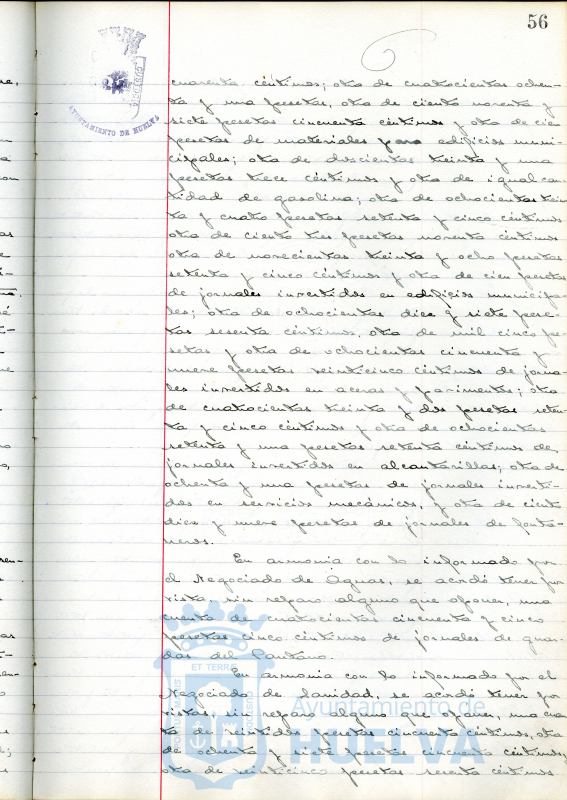 56
AYUNTAMIENTO DE HUELVA
cuarenta céntimos; otra de cuatrocientas ochen-
ta y una pesetas, otra de ciento noventa y
siete pesetas cincuenta céntimos y otra de cien
pesetas de materiales para edificios muni-
cipales; otra de doscientas treinta y una
pesetas trece céntimos y otra de igual can-
tidad de gasolina; otra de ochocientas trein
ta y cuatro pesetas setenta y cinco céntimos
otra de ciento tres pesetas noventa céntimos
otra de novecientas treinta y ocho pesetas
setenta y cinco céntimos y otra de cien pesetas
de jornales invertidos en edificios municipa-
les; otra de ochocientas diez y siete pese-
tas sesenta céntimos, otra de mil cinco pe-
setas y otra de ochocientas cincuenta y
nueve pesetas veinticinco céntimos de jorna-
les invertidos en aceras y pavimentos; otra
de cuatrocientas treinta y dos pesetas seten-
ta y cinco céntimos y otra de ochocientas
setenta y una pesetas setenta céntimos de
jornales invertidos en alcantarillas; otra de
ochenta y una pesetas de jornales inverti-
dos en servicios mecánicos, y otra de ciento
diez y nueve pesetas de jornales de fonta-
neros.
En armonía con lo informado por
el Negociado de Aguas, se acordó tener por
vista, sin reparo alguno que oponer, una
cuenta de cuatrocientas cincuenta y cinco
pesetas cinco céntimos de jornales de guar-
das del Pantano.
En armonía con lo informado por el
Negociado de Sanidad, se acordó tener por
vistas, sin reparo alguno que oponer, una cuen
ta de veintidos pesetas cincuenta céntimos, otra
de ochenta y siete pesetas cincuenta céntimos,
otra de veinticinco pesetas sesenta céntimos
Ayuntamiento de
HUELVA